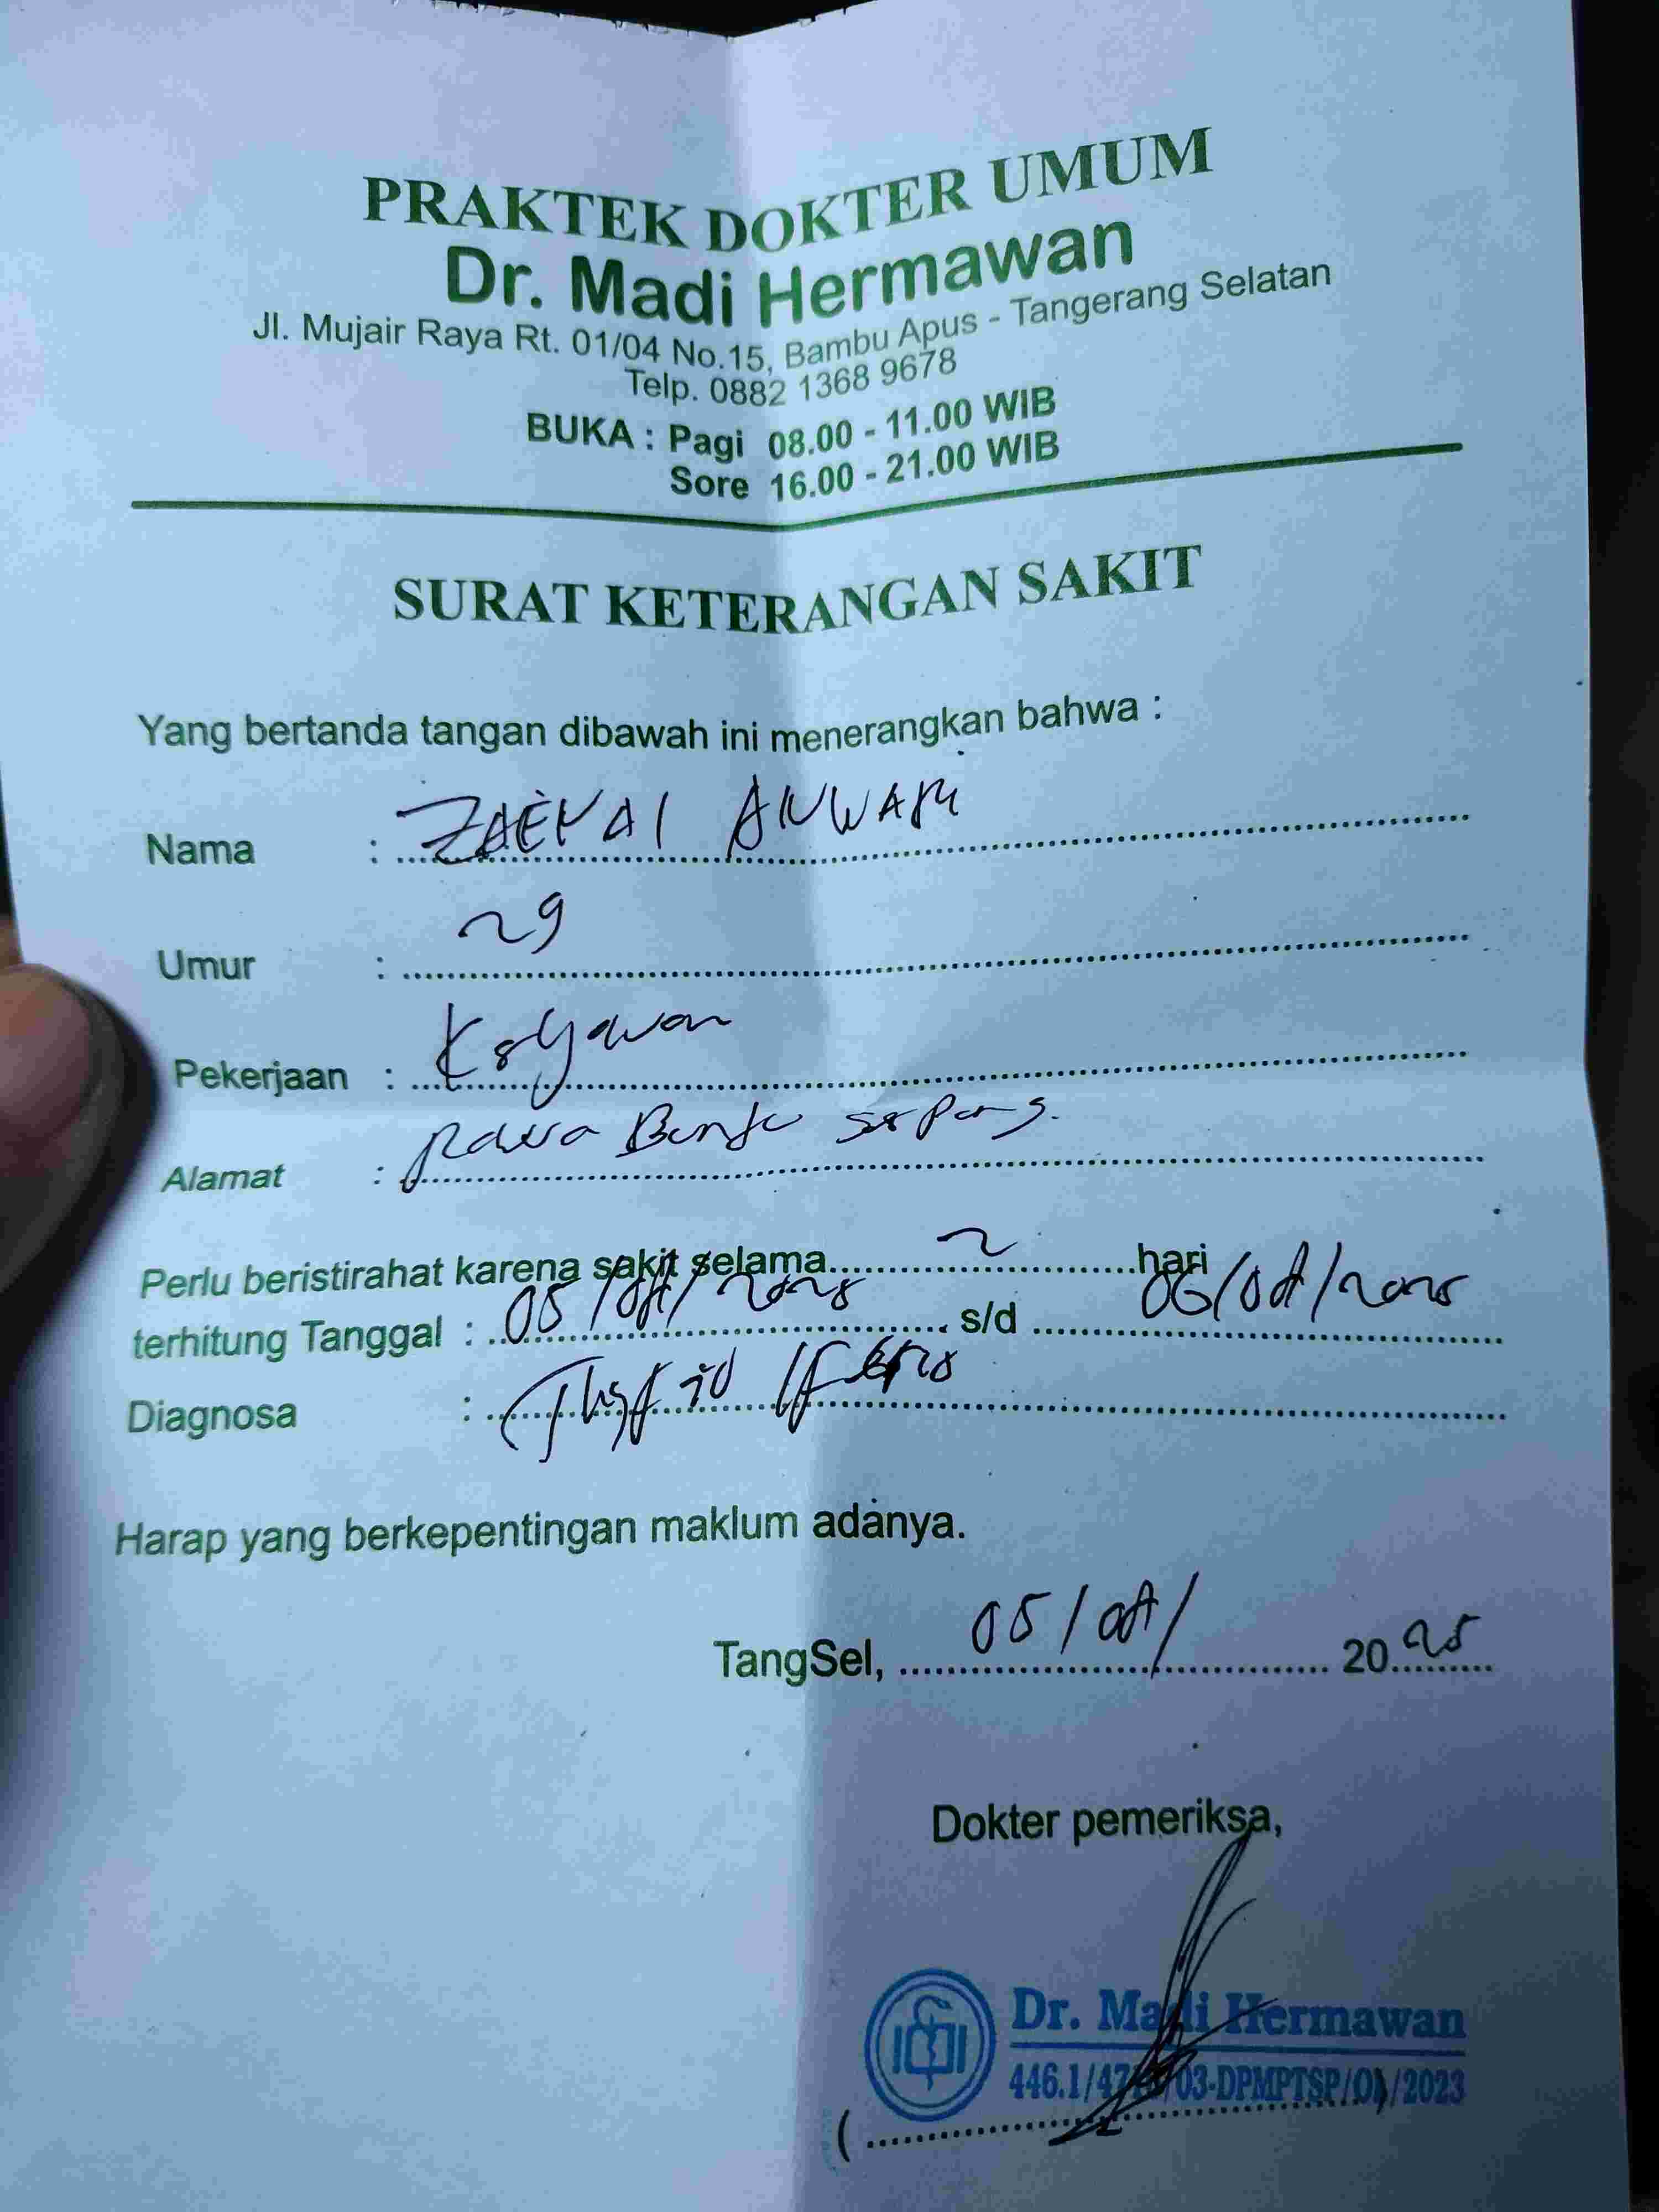 PRAKTEK DOKTER UMUM
Dr. Madi Hermawan
Jl. Mujair Raya Rt. 01/04 No.15, Bambu Apus - Tangerang Selatan
Telp. 0882 1368 9678
BUKA : Pagi 08.00 - 11.00 WIB
Sore 16.00 - 21.00 WIB
SURAT KETERANGAN SAKIT
Yang bertanda tangan dibawah ini menerangkan bahwa :
Nama : ANWAR
Umur : 29
Pekerjaan : Karyawan
Alamat : Rawa Buntu Serpong.
Perlu beristirahat karena sakit selama 2 hari
terhitung Tanggal : 05/okt/2025 s/d 06/okt/2025
Diagnosa : Thyfoid
Harap yang berkepentingan maklum adanya.
TangSel, 05/okt/ 2025
Dokter pemeriksa,
Dr. Madi Hermawan
(